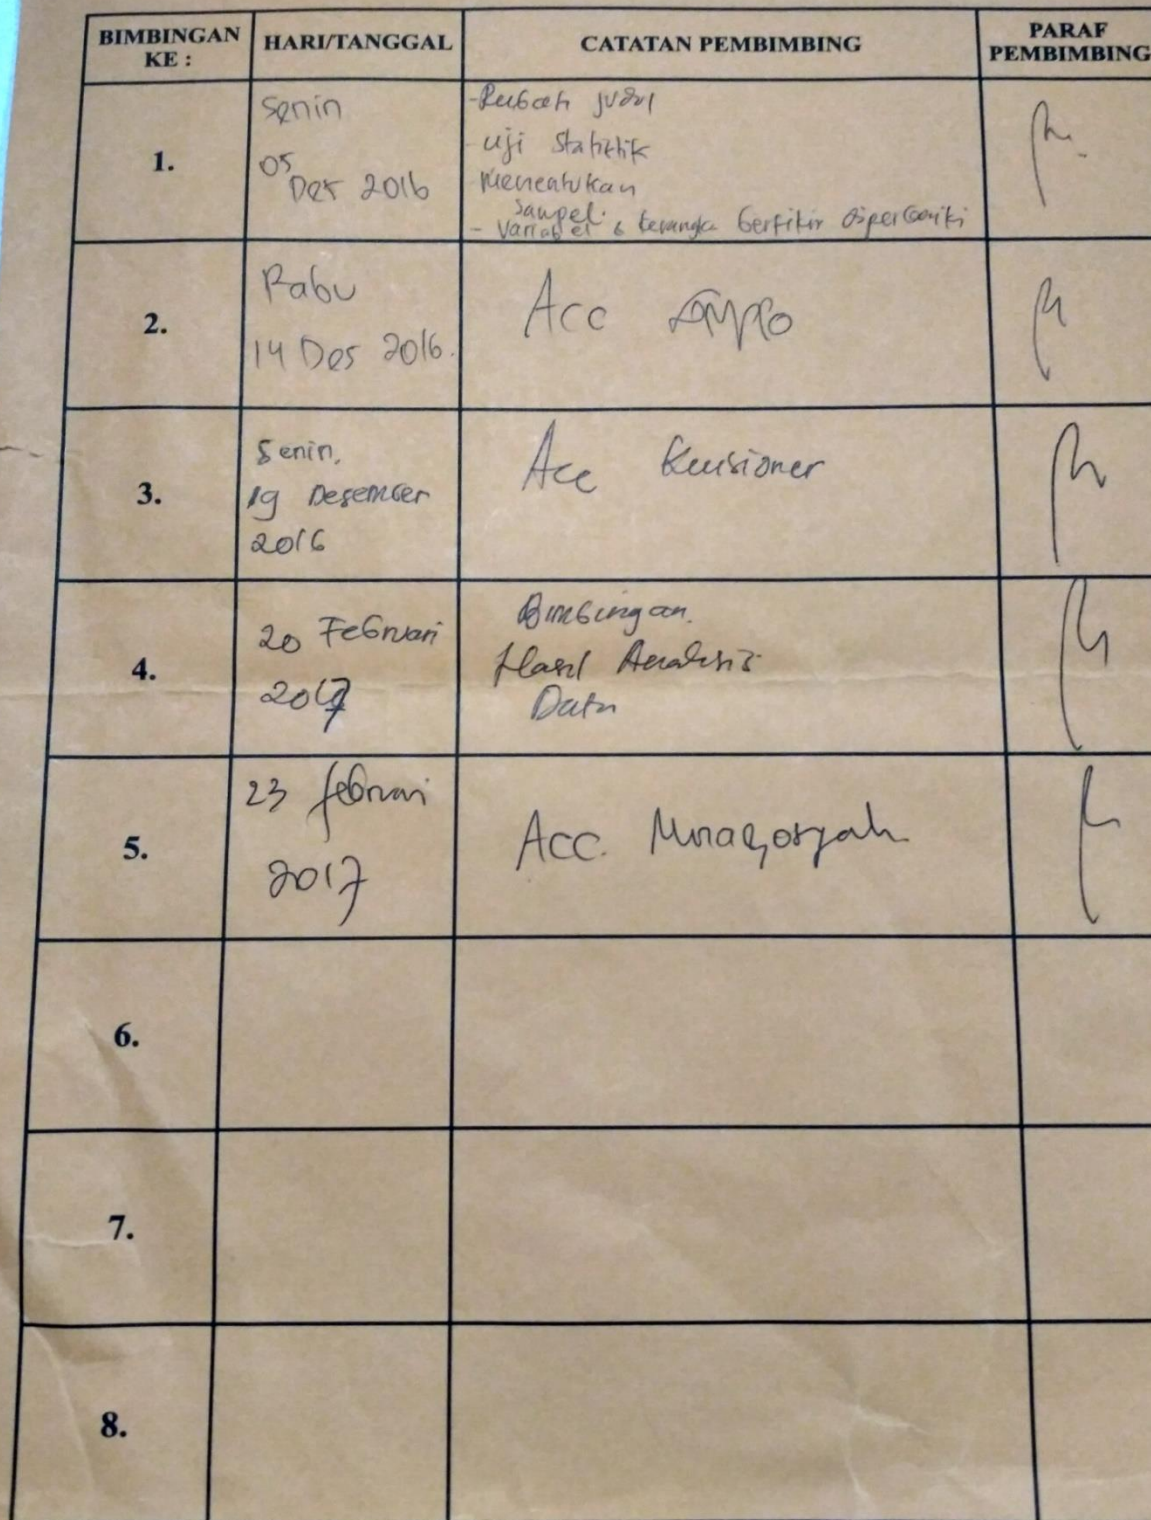 BIMBINGAN KE : HARI/TANGGAL CATATAN PEMBIMBING PARAF PEMBIMBING
1.
Senin
05 Des 2016
- Rubah judul
- uji statistik
- Menentukan
sampel.
- Variabel & kerangka berfikir diperbaiki
2.
Rabu
14 Des 2016.
Acc
3.
Senin,
19 Desember
2016
Acc Kuisioner
4.
20 Februari
2017
Bimbingan.
Hasil Analisis
Data
5.
23 februari
2017
Acc. Munaqosyah
6.
7.
8.